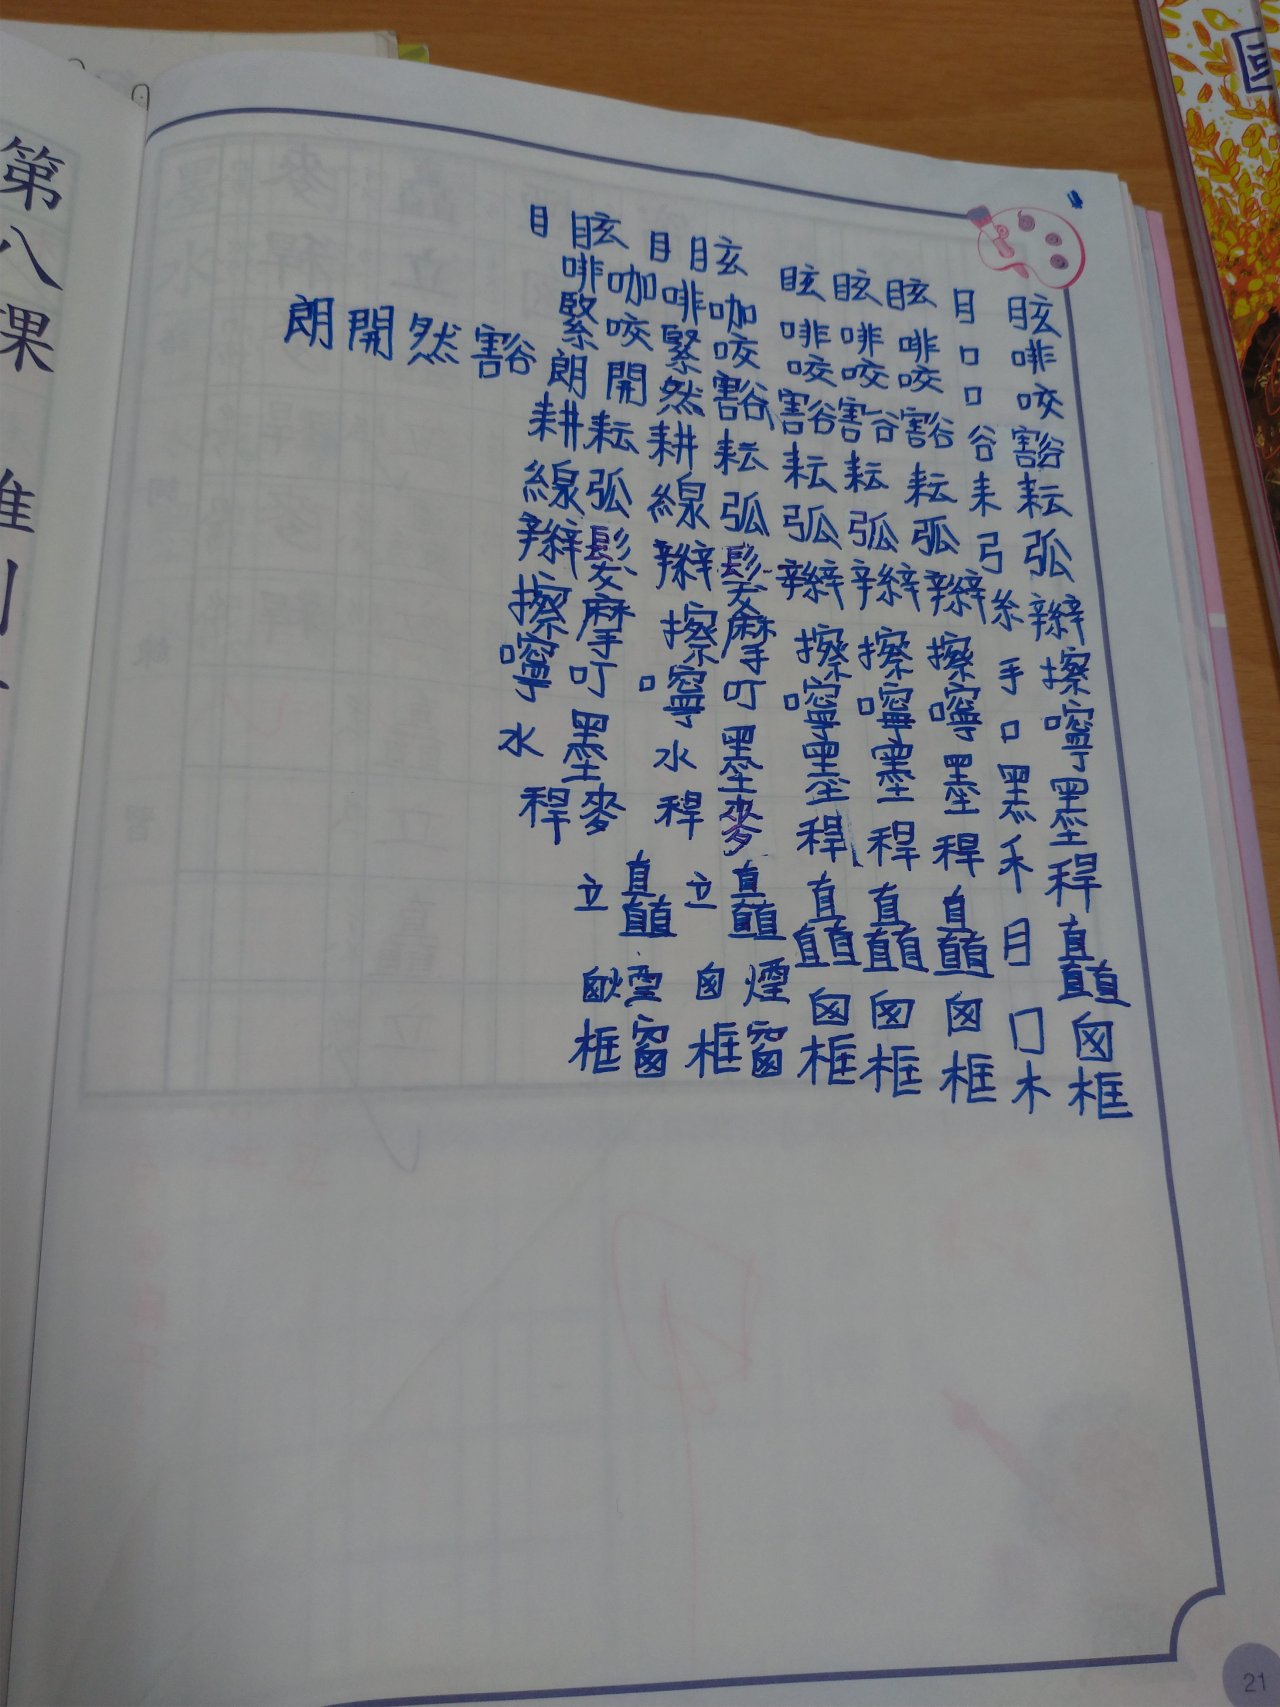 眩啡咬豁耘弧辮擦嚀墨稈矗囪框
目口口谷耒弓糸手口黑禾目囗木
眩啡咬豁耘弧辮擦嚀墨稈矗囪框
眩啡咬豁耘弧辮擦嚀墨稈矗囪框
眩啡咬豁耘弧辮擦嚀墨稈矗囪框
眩咖咬豁耘弧髮摩叮墨麥矗煙窗
目啡緊然耕線辮擦嚀水稈立囪框
眩咖咬開耘弧髮摩叮墨麥矗煙窗
目啡緊朗耕線辮擦嚀水稈立囪框
豁然開朗
第八課
21